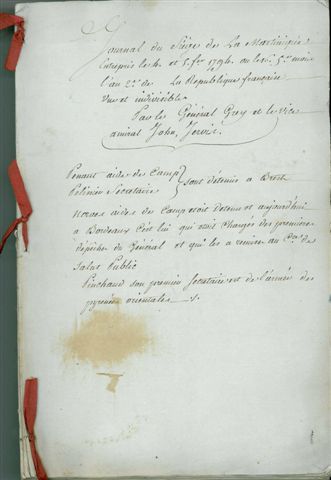 Journal du Siège de La Martinique
Entrepris le 4. et 5. fer 1794.
l'an 2me de La Republique française
une et indivisible
Par le Général Grey et le vice
amiral John, Jervis.
aide de Camp
Secretaire } sont détenus a Brest
aide de Camp etoit detenu et aujourdhui
a Bordeaux c'est lui qui etait chargé des premieres
dépêches du Général et qui les a remises au de
Salut Public
son premier Secretaire est de l'armée des
pyrénées orientales